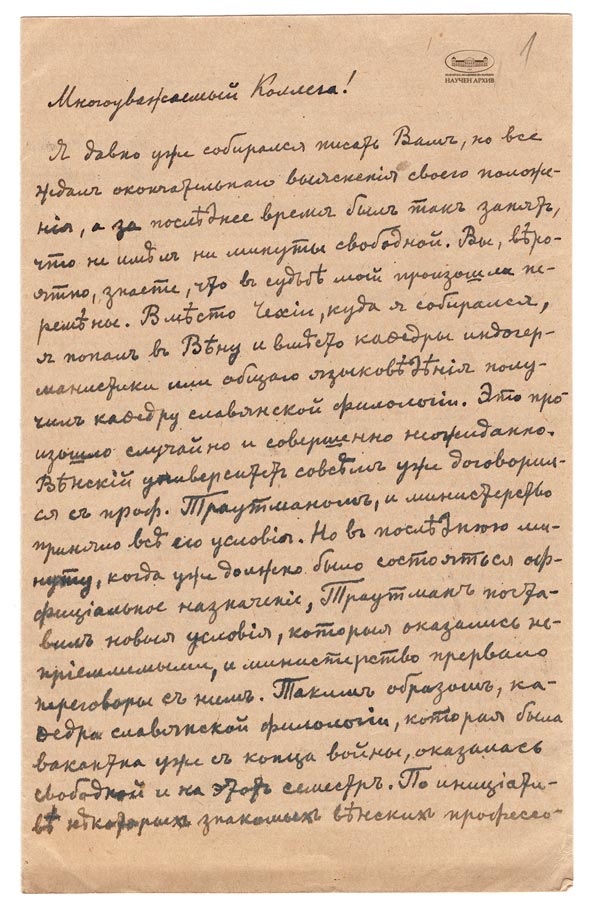 1
НАУЧЕН АРХИВ
Многоуважаемый Коллега!
Я давно уже собирался писать Вамъ, но все
ждалъ окончательнаго выясненія своего положе-
нія, а за послѣднее время былъ такъ занятъ,
что не имѣлъ ни минуты свободной. Вы, вѣро-
ятно, знаете, что въ судьбѣ моей произошли пе-
ремѣны. Вмѣсто Чехіи, куда я собирался,
я попалъ въ Вѣну и вмѣсто каѳедры индогер-
манистики или общаго языковѣдѣнія полу-
чилъ каѳедру славянской филологіи. Это про-
изошло случайно и совершенно неожиданно.
Вѣнскій университетъ совсѣмъ уже договорил-
ся съ проф. Траутманомъ, и министерство
приняло всѣ его условія. Но въ послѣднюю ми-
нуту, когда уже должно было состояться оф-
фиціальное назначеніе, Траутманъ поста-
вилъ новыя условія, которыя оказались не-
пріемлимыми, и министерство прервало
переговоры съ нимъ. Такимъ образомъ, ка-
ѳедра славянской филологіи, которая была
вакантна уже съ конца войны, оказалась
свободной и на этотъ семестръ. По иниціати-
вѣ нѣкоторыхъ знакомыхъ вѣнскихъ профессо-